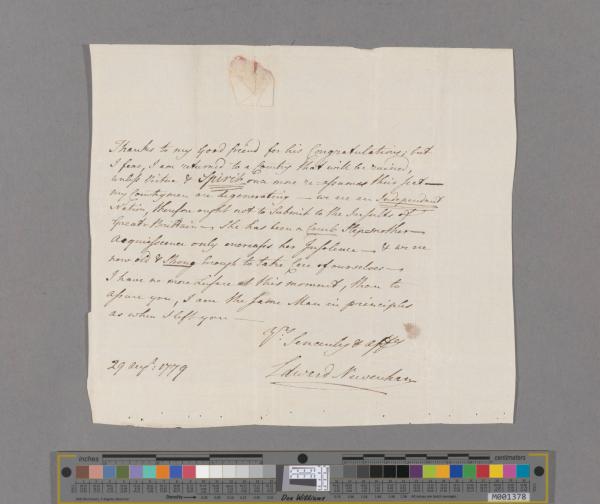 Thanks to my Good friend for his Congratulations; but
I fear, I am returned to a Country that will be ruined,
unless Virtue & Spirit once more re-assumes this seat —
my Countrymen are degenerating — we are an Independent
Nation, therefore ought not to Submit to the Insults of
Great-Brittain — She has been a Cruel Stepmother —
Acquiessence only encreases her Insolence — & we are
now old & Strong Enough to take Care of ourselves —
I have no more Leisure at this moment, than to
assure you, I am the Same Man in principles
as when I left you —
Yrs. Sincerely & affly
Edward Newenham
29 Augt: 1779
inches
centimeters
Density
Don Williams
M001378